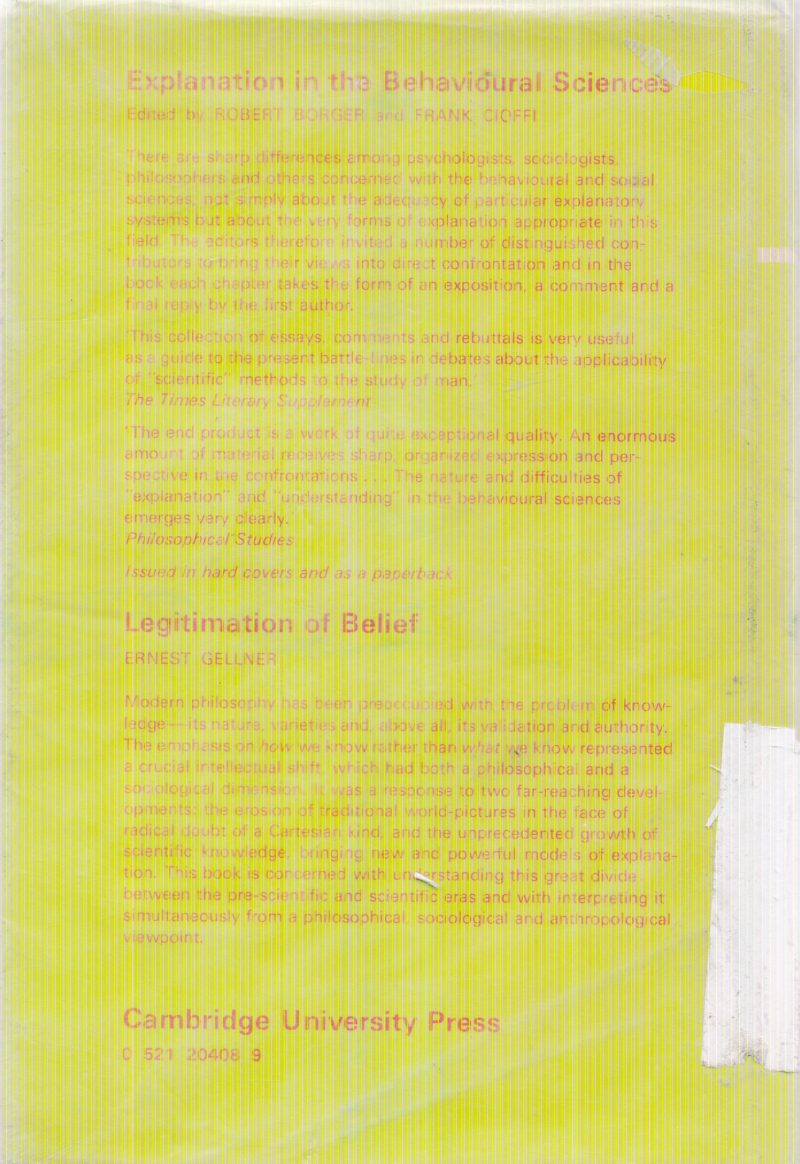 Explanation in the Behavioural Sciences
Edited by ROBERT BORGER and FRANK CIOFFI
There are sharp differences among psychologists, sociologists,
philosophers and others concerned with the behavioural and social
sciences, not simply about the adequacy of particular explanatory
systems but about the very forms of explanation appropriate in this
field. The editors therefore invited a number of distinguished con-
tributors to bring their views into direct confrontation and in the
book each chapter takes the form of an exposition, a comment and a
final reply by the first author.
'This collection of essays, comments and rebuttals is very useful
as a guide to the present battle-lines in debates about the applicability
of "scientific" methods to the study of man.'
The Times Literary Supplement
'The end product is a work of quite exceptional quality. An enormous
amount of material receives sharp, organized expression and per-
spective in the confrontations . . . The nature and difficulties of
"explanation" and "understanding" in the behavioural sciences
emerges very clearly.'
Philosophical Studies
Issued in hard covers and as a paperback
Legitimation of Belief
ERNEST GELLNER
Modern philosophy has been preoccupied with the problem of know-
ledge—its nature, varieties and, above all, its validation and authority.
The emphasis on how we know rather than what we know represented
a crucial intellectual shift, which had both a philosophical and a
sociological dimension. It was a response to two far-reaching devel-
opments: the erosion of traditional world-pictures in the face of
radical doubt of a Cartesian kind, and the unprecedented growth of
scientific knowledge, bringing new and powerful models of explana-
tion. This book is concerned with understanding this great divide
between the pre-scientific and scientific eras and with interpreting it
simultaneously from a philosophical, sociological and anthropological
viewpoint.
Cambridge University Press
0 521 20408 9